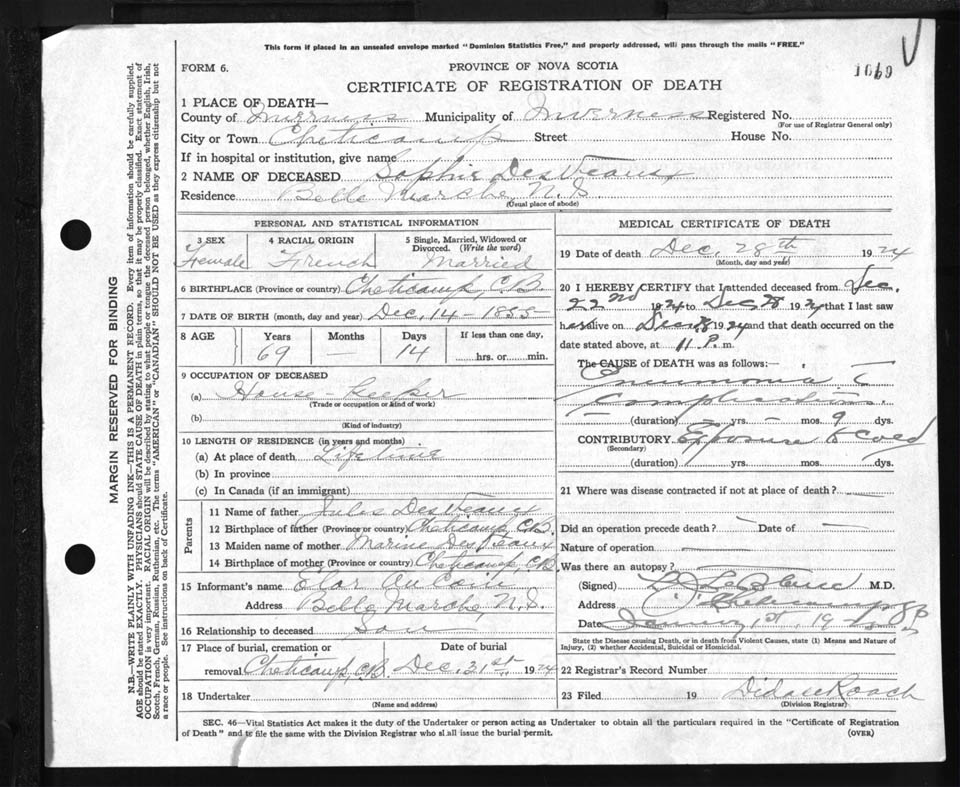 This form if placed in an unsealed envelope marked "Dominion Statistics Free," and properly addressed, will pass through the mails "FREE."
1069
FORM 6.
PROVINCE OF NOVA SCOTIA
CERTIFICATE OF REGISTRATION OF DEATH
1 PLACE OF DEATH—
County of Inverness Municipality of Inverness Registered No.
(For use of Registrar General only)
City or Town Cheticamp Street House No.
If in hospital or institution, give name
2 NAME OF DECEASED Sophie DesVeaux
Residence Belle Marche, N.S
(Usual place of abode)
PERSONAL AND STATISTICAL INFORMATION
3 SEX
Female
4 RACIAL ORIGIN
French
5 Single, Married, Widowed or
Divorced. (Write the word)
Married
6 BIRTHPLACE (Province or country) Cheticamp, C.B.
7 DATE OF BIRTH (month, day and year) Dec. 14 - 1855
8 AGE
Years
69
Months
—
Days
14
If less than one day,
hrs. or min.
9 OCCUPATION OF DECEASED
(a) House-keeper
(Trade or occupation or kind of work)
(b)
(Kind of industry)
10 LENGTH OF RESIDENCE (in years and months)
(a) At place of death Lifetime
(b) In province
(c) In Canada (if an immigrant)
Parents
11 Name of father Jules DesVeaux
12 Birthplace of father (Province or country) Cheticamp, C.B.
13 Maiden name of mother DesVeaux
14 Birthplace of mother (Province or country) Cheticamp, C.B.
15 Informant's name Au Coin
Address Belle Marche, N.S.
16 Relationship to deceased Son
17 Place of burial, cremation or Date of burial
removal Cheticamp, C.B. Dec. 31st. 1924
18 Undertaker
(Name and address)
MEDICAL CERTIFICATE OF DEATH
19 Date of death Dec. 28th 1924
(Month, day and year)
20 I HEREBY CERTIFY that I attended deceased from Dec.
22nd 1924 to Dec 28 1924 that I last saw
her alive on Dec 28 1924 and that death occurred on
date stated above, at 11 P. m.
The CAUSE of DEATH was as follows:
Pneumonia
Complications
(duration) yrs. mos. 9 dys.
CONTRIBUTORY Exposure to cold
(Secondary)
(duration) yrs. mos. dys.
21 Where was disease contracted if not at place of death? —
Did an operation precede death? — Date of —
Nature of operation —
Was there an autopsy? —
(Signed) M.D.
Address Cheticamp
Date January 1st, 19
State the Disease causing Death, or in death from Violent Causes, state (1) Means and Nature of
Injury, (2) whether Accidental, Suicidal or Homicidal.
22 Registrar's Record Number
23 Filed 19 Didace Roach
(Division Registrar)
SEC. 46—Vital Statistics Act makes it the duty of the Undertaker or person acting as Undertaker to obtain all the particulars required in the "Certificate of Registration
of Death" and to file the same with the Division Registrar who shall issue the burial permit.
(OVER)
MARGIN RESERVED FOR BINDING
N.B.—WRITE PLAINLY WITH UNFADING INK—THIS IS A PERMANENT RECORD. Every item of information should be carefully supplied.
AGE should be stated EXACTLY. PHYSICIANS should STATE CAUSE OF DEATH in plain terms, so that it may be properly classified. Exact statement of
OCCUPATION is very important. RACIAL ORIGIN will be described by stating to what people or tongue the deceased person belonged, whether English, Irish,
Scotch, French, German, Russian, Ruthenian, etc. The terms "AMERICAN" or "CANADIAN" SHOULD NOT BE USED as they express citizenship but not
a race or people. See instructions on back of Certificate.